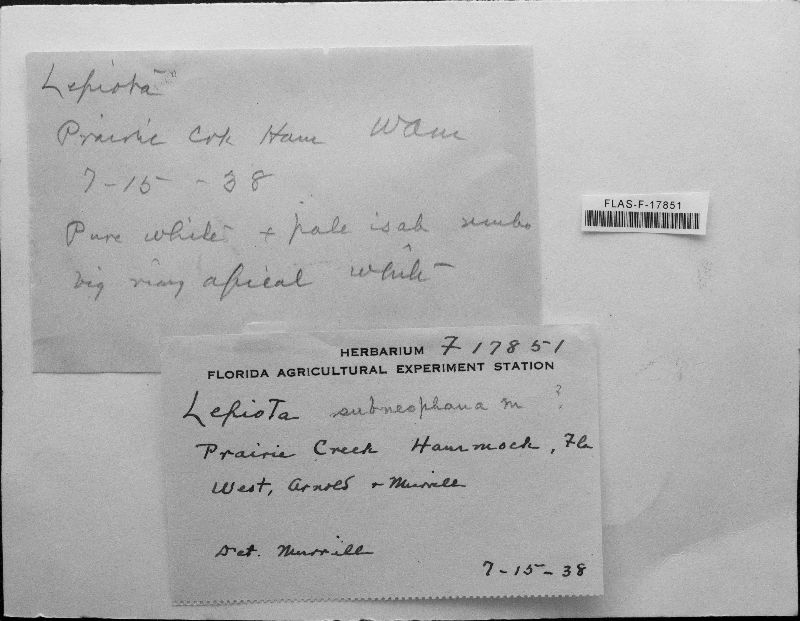 Lepiota
Prairie Crk Ham WAM
7-15-38
Pure white + pale isab umbo
big ring apical white
FLAS-F-17851
HERBARIUM F 17851
FLORIDA AGRICULTURAL EXPERIMENT STATION
Lepiota subneophana m ?
Prairie Creek Hammock, Fla
West, Arnold + Murrill
Det. Murrill
7-15-38